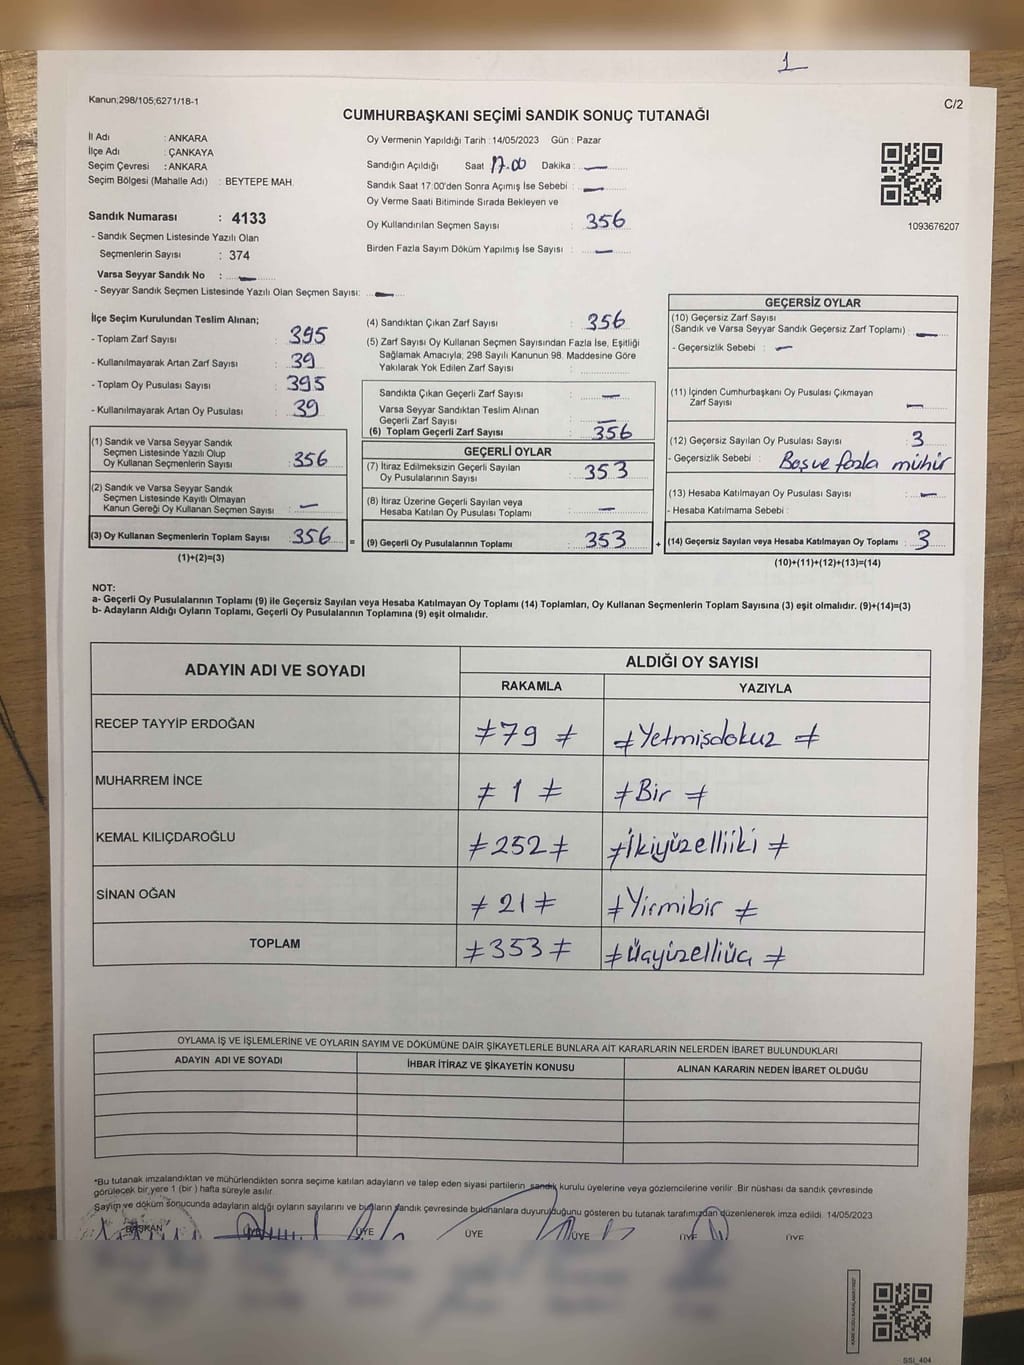 1
Kanun;298/105;6271/18-1
C/2
CUMHURBAŞKANI SEÇİMİ SANDIK SONUÇ TUTANAĞI
İl Adı : ANKARA
İlçe Adı : ÇANKAYA
Seçim Çevresi : ANKARA
Seçim Bölgesi (Mahalle Adı) : BEYTEPE MAH.
Oy Vermenin Yapıldığı Tarih : 14/05/2023 Gün : Pazar
Sandığın Açıldığı Saat 17.00 Dakika : —
Sandık Saat 17:00'den Sonra Açımış İse Sebebi : —
Oy Verme Saati Bitiminde Sırada Bekleyen ve
Oy Kullandırılan Seçmen Sayısı : 356
Birden Fazla Sayım Döküm Yapılmış İse Sayısı : —
1093676207
Sandık Numarası : 4133
- Sandık Seçmen Listesinde Yazılı Olan
Seçmenlerin Sayısı : 374
Varsa Seyyar Sandık No : —
- Seyyar Sandık Seçmen Listesinde Yazılı Olan Seçmen Sayısı: —
İlçe Seçim Kurulundan Teslim Alınan;
- Toplam Zarf Sayısı : 395
- Kullanılmayarak Artan Zarf Sayısı : 39
- Toplam Oy Pusulası Sayısı : 395
- Kullanılmayarak Artan Oy Pusulası : 39
(1) Sandık ve Varsa Seyyar Sandık
Seçmen Listesinde Yazılı Olup
Oy Kullanan Seçmenlerin Sayısı : 356
(2) Sandık ve Varsa Seyyar Sandık
Seçmen Listesinde Kayıtlı Olmayan
Kanun Gereği Oy Kullanan Seçmen Sayısı : —
(3) Oy Kullanan Seçmenlerin Toplam Sayısı : 356 =
(1)+(2)=(3)
(4) Sandıktan Çıkan Zarf Sayısı : 356
(5) Zarf Sayısı Oy Kullanan Seçmen Sayısından Fazla İse, Eşitliği
Sağlamak Amacıyla; 298 Sayılı Kanunun 98. Maddesine Göre
Yakılarak Yok Edilen Zarf Sayısı :
Sandıkta Çıkan Geçerli Zarf Sayısı : —
Varsa Seyyar Sandıktan Teslim Alınan
Geçerli Zarf Sayısı : —
(6) Toplam Geçerli Zarf Sayısı : 356
GEÇERLİ OYLAR
(7) İtiraz Edilmeksizin Geçerli Sayılan
Oy Pusulalarının Sayısı : 353
(8) İtiraz Üzerine Geçerli Sayılan veya
Hesaba Katılan Oy Pusulası Toplamı : —
(9) Geçerli Oy Pusulalarının Toplamı : 353 +
GEÇERSİZ OYLAR
(10) Geçersiz Zarf Sayısı
(Sandık ve Varsa Seyyar Sandık Geçersiz Zarf Toplamı) : —
- Geçersizlik Sebebi : —
(11) İçinden Cumhurbaşkanı Oy Pusulası Çıkmayan
Zarf Sayısı : —
(12) Geçersiz Sayılan Oy Pusulası Sayısı : 3
- Geçersizlik Sebebi : Boş ve fazla mühür
(13) Hesaba Katılmayan Oy Pusulası Sayısı : —
- Hesaba Katılmama Sebebi :
(14) Geçersiz Sayılan veya Hesaba Katılmayan Oy Toplamı : 3
(10)+(11)+(12)+(13)=(14)
NOT:
a- Geçerli Oy Pusulalarının Toplamı (9) ile Geçersiz Sayılan veya Hesaba Katılmayan Oy Toplamı (14) Toplamları, Oy Kullanan Seçmenlerin Toplam Sayısına (3) eşit olmalıdır. (9)+(14)=(3)
b- Adayların Aldığı Oyların Toplamı, Geçerli Oy Pusulalarının Toplamına (9) eşit olmalıdır.
ADAYIN ADI VE SOYADI ALDIĞI OY SAYISI
RAKAMLA YAZIYLA
RECEP TAYYİP ERDOĞAN ≠79≠ ≠Yetmişdokuz≠
MUHARREM İNCE ≠1≠ ≠Bir≠
KEMAL KILIÇDAROĞLU ≠252≠ ≠İkiyüzelliiki≠
SİNAN OĞAN ≠21≠ ≠Yirmibir≠
TOPLAM ≠353≠ ≠Üçyüzelliüç≠
OYLAMA İŞ VE İŞLEMLERİNE VE OYLARIN SAYIM VE DÖKÜMÜNE DAİR ŞİKAYETLERLE BUNLARA AİT KARARLARIN NELERDEN İBARET BULUNDUKLARI
ADAYIN ADI VE SOYADI İHBAR İTİRAZ VE ŞİKAYETİN KONUSU ALINAN KARARIN NEDEN İBARET OLDUĞU
*Bu tutanak imzalandıktan ve mühürlendikten sonra seçime katılan adayların ve talep eden siyasi partilerin, sandık kurulu üyelerine veya gözlemcilerine verilir. Bir nüshası da sandık çevresinde
görülecek bir yere 1 (bir ) hafta süreyle asılır.
Sayım ve döküm sonucunda adayların aldığı oyların sayılarını ve bunların sandık çevresinde bulunanlara duyurulduğunu gösteren bu tutanak tarafımızdan düzenlenerek imza edildi. 14/05/2023
BAŞKAN ÜYE ÜYE ÜYE ÜYE ÜYE ÜYE
SSI_404